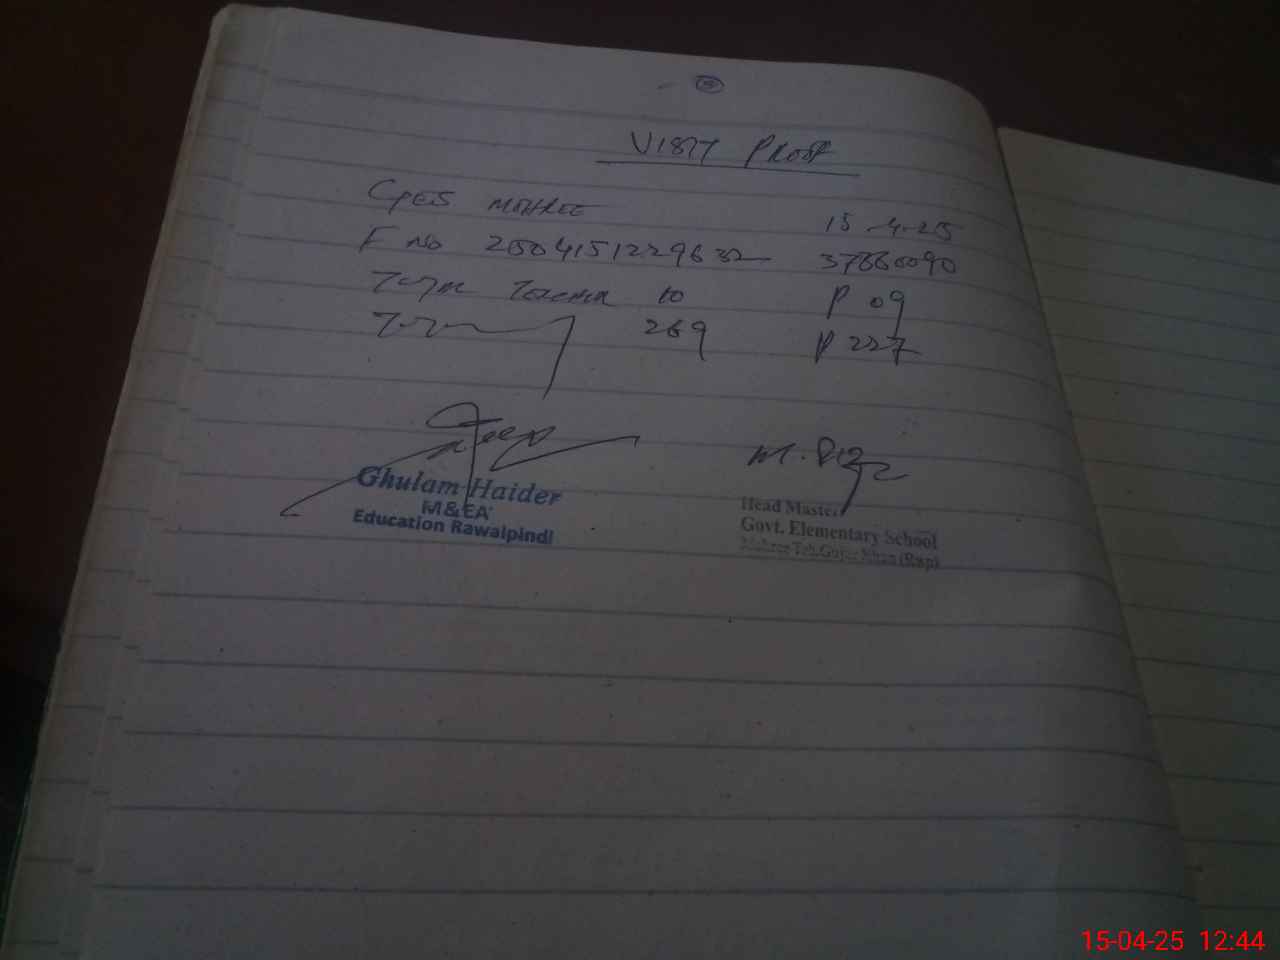 VISIT PROOF
GPES MOHREE 15-4-25
F No 2504151229632 37330090
Total Teacher 10 P 09
Total 269 P 227
Ghulam Haider
M&EA
Education Rawalpindi
M. Riaz
Head Master
Govt. Elementary School
Mohree Teh.Gujar Khan (Rwp)
15-04-25 12:44